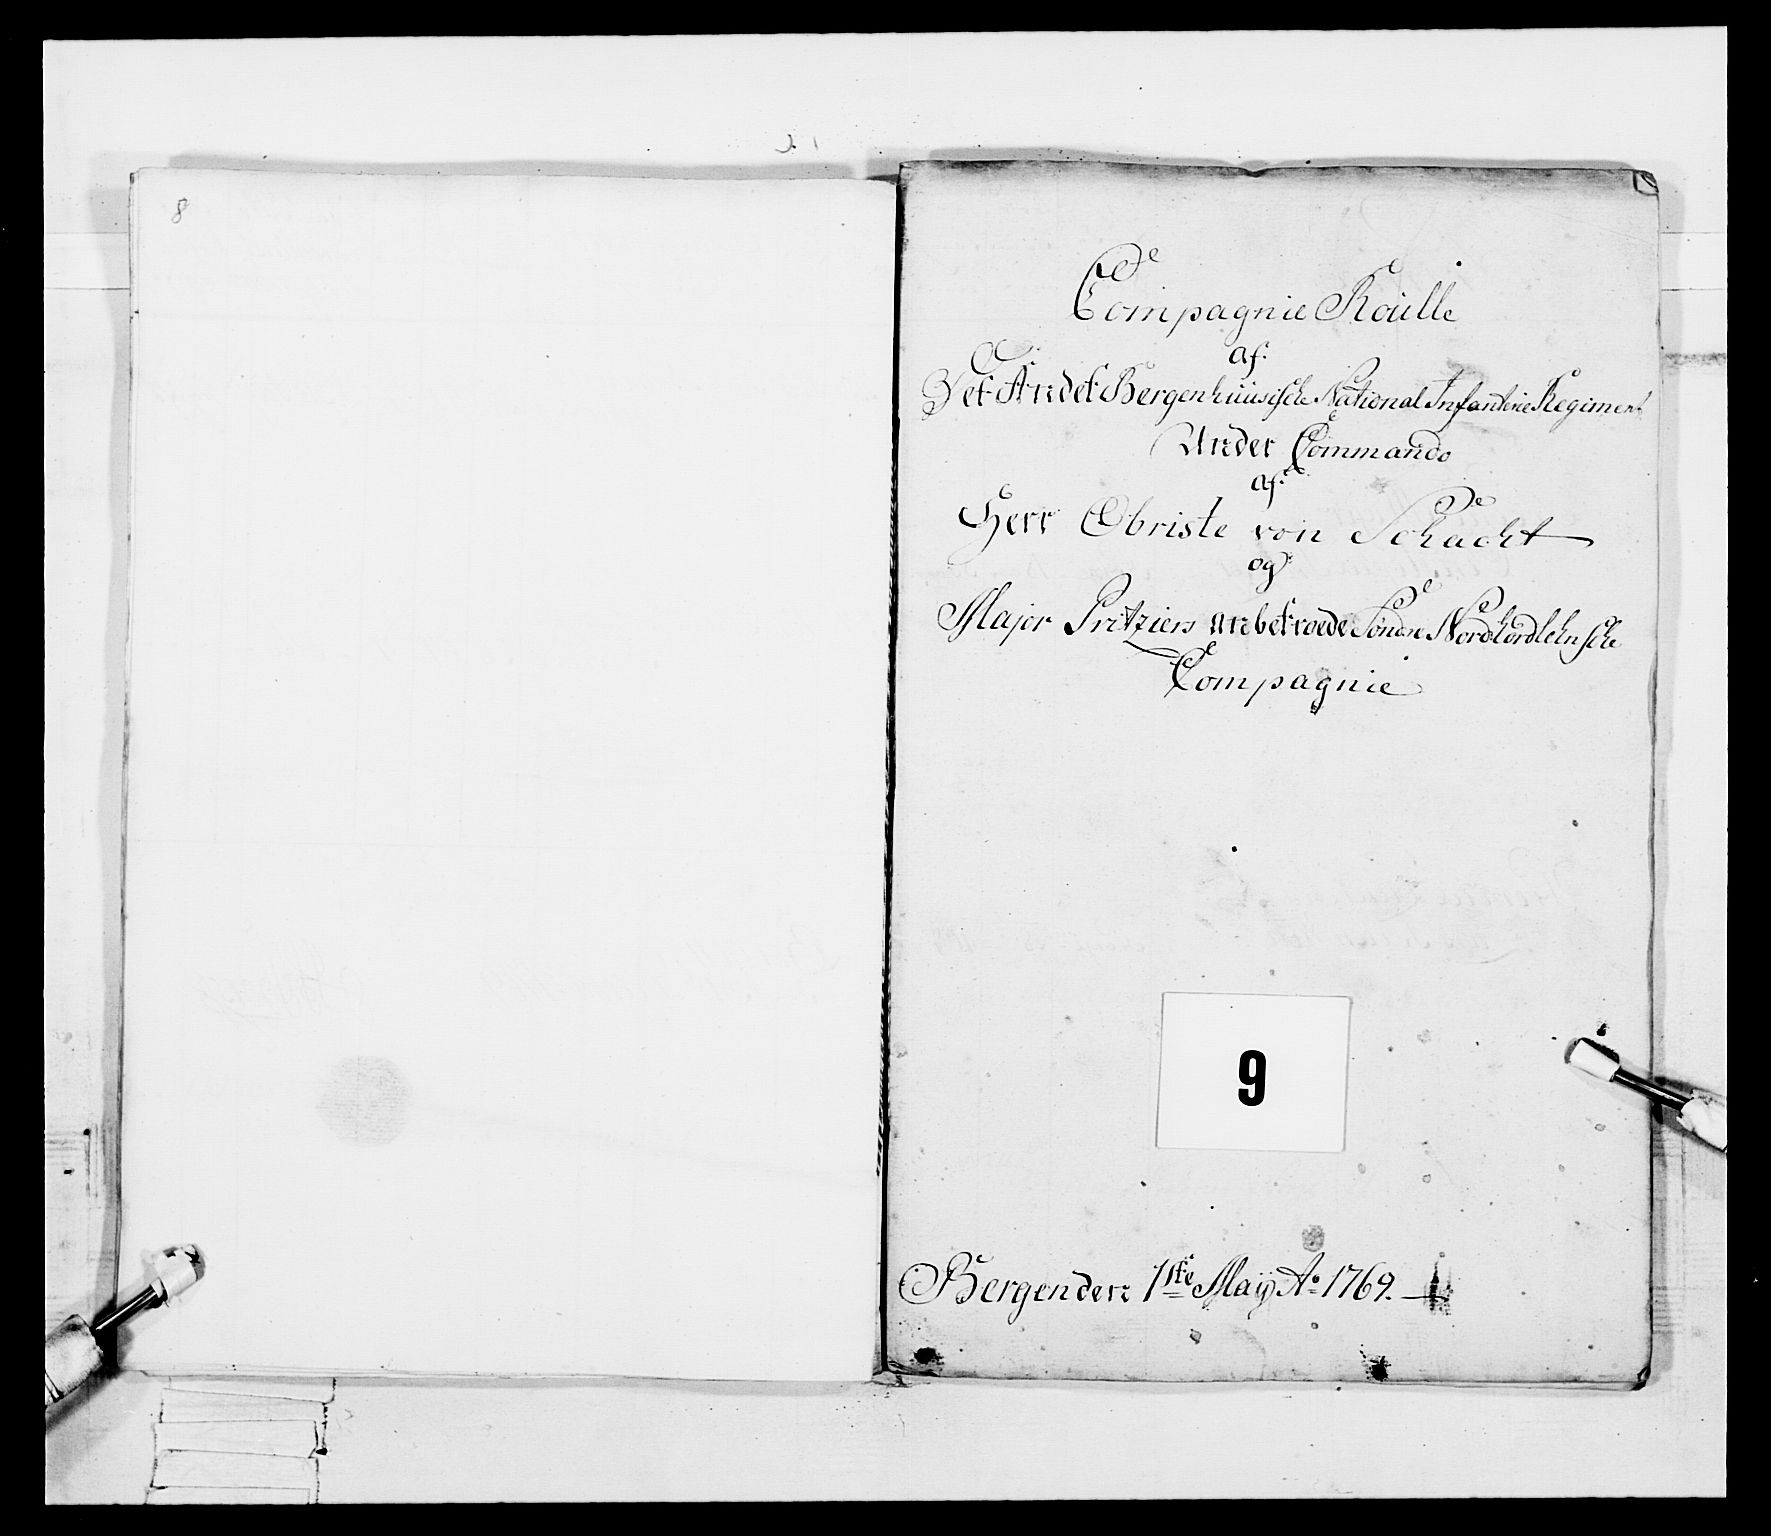 8
Compagnie Roulle
af
Det Andet Bergenhuusische National Infanterie Regiment
Under Commando
af
Herr Obriste von Schacht
og
Major Pritziers anbetroede Søndre Nordhordlehnsche
Compagnie
9
Bergen den 1ste Maÿ Ao 1769.